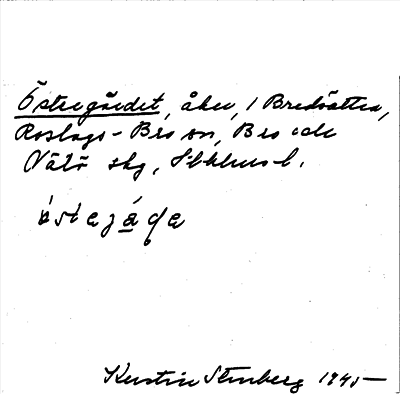 Östergärdet, åker, i Bredsättra,
Roslags-Bro sn, Bro och
Vätö skg, Sthlms l.
Kerstin Stenberg 1945